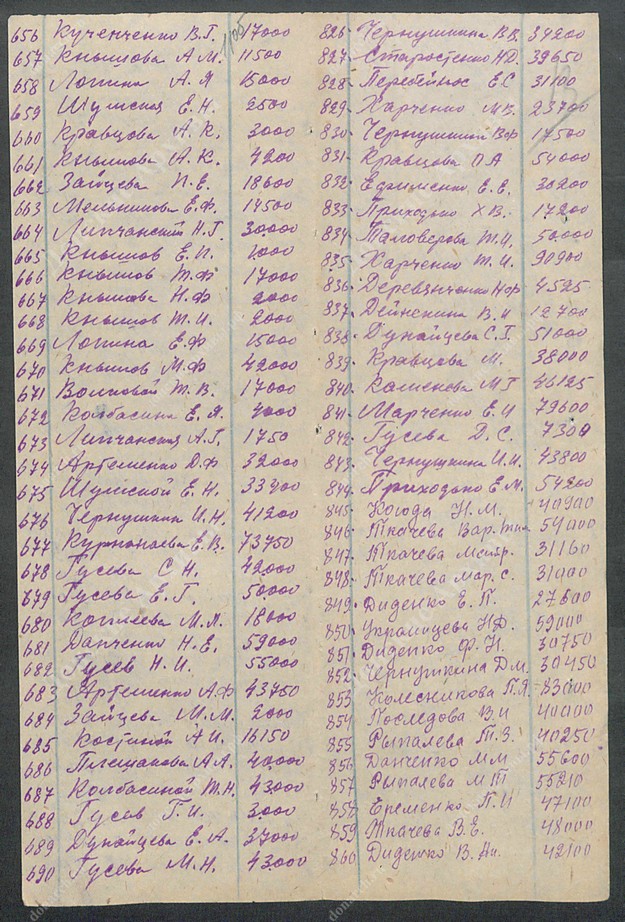 656 Кученченко В.Г. 17000
657 Кнышова А.М. 11500
658 Логина А.Я 15000
659 Шумская Е.Н. 2500
660 Кравцова А.К. 3000
661 Кнышова А.К. 4200
662 Зайцева П.Е. 18600
663 Мельникова Е.Ф. 14500
664 Липчанский Н.Г. 30000
665 Кнышов Е.П. 1000
666 Кнышов Т.Ф 17000
667 Кнышова Н.Ф 2000
668 Кнышов Т.И. 2000
669 Логина Е.Ф 15000
670 Кнышов М.Ф 42000
671 Волковой Т.В. 17000
672 Колбасина Е.Я.
673 Липчанская А.Г. 1750
674 Артеменко Д.Ф 32000
675 Шумской Е.Н. 33700
676 Чернушкин И.Н. 41200
677 Е.В. 73750
678 Гусева С.Н. 42000
679 Гусева Е.Г. 50000
680 М.М. 18000
681 Данченко Н.Е. 59000
682 Гусев Н.И. 55000
683 Артеменко А.Ф 43750
684 Зайцева М.М. 2000
685 Костиной А.И. 16150
686 Плешакова А.А. 40000
687 Колбасиной Т.Н. 43000
688 Гусев Г.И. 3000
689 Дунайцева Е.А. 37000
690 Гусева М.Н. 43000
826 Чернушкина В.В. 34200
827 Старостенко Н.Д. 39650
828 Перебейнос Е.С 31100
829 Харченко М.В. 23700
830 Чернушкина В.Ф 17500
831 Кравцова П.А 54000
832 Ефименко Е.Е. 30200
833 Приходько Х.В. 17200
834 Таловерова Т.И. 50000
835 Харченко Т.И. 90900
836 Деревянченко Н.Ф 4525
837 Дейнекина В.И 12700
838 Дунайцева С.Г. 51000
839 Кравцова М. 38000
840 Каменева М.Г 46125
841 Марченко Е.И 79600
842 Гусева Д.С. 7300
843 Чернушкина И.И. 43800
844 Приходько Е.М. 54200
845 Когода Н.М. 40900
846 Ткачева Вар. 54000
847 Ткачева 31160
848 Ткачева Мар. С. 31000
849 Диденко Е.П. 27600
850 Украинцева Н.Ф. 59000
851 Диденко Ф.Н. 30750
852 Чернушкина Д.М. 30450
853 Колесникова П.Я. 83000
854 Последова В.И 40000
855 Рыпалева Т.З. 40250
856 Данченко М.М 55600
857 Рыпалева М.Т 55210
858 Еременко П.И 47100
859 Ткачева В.Е. 48000
860 Диденко В. 42100